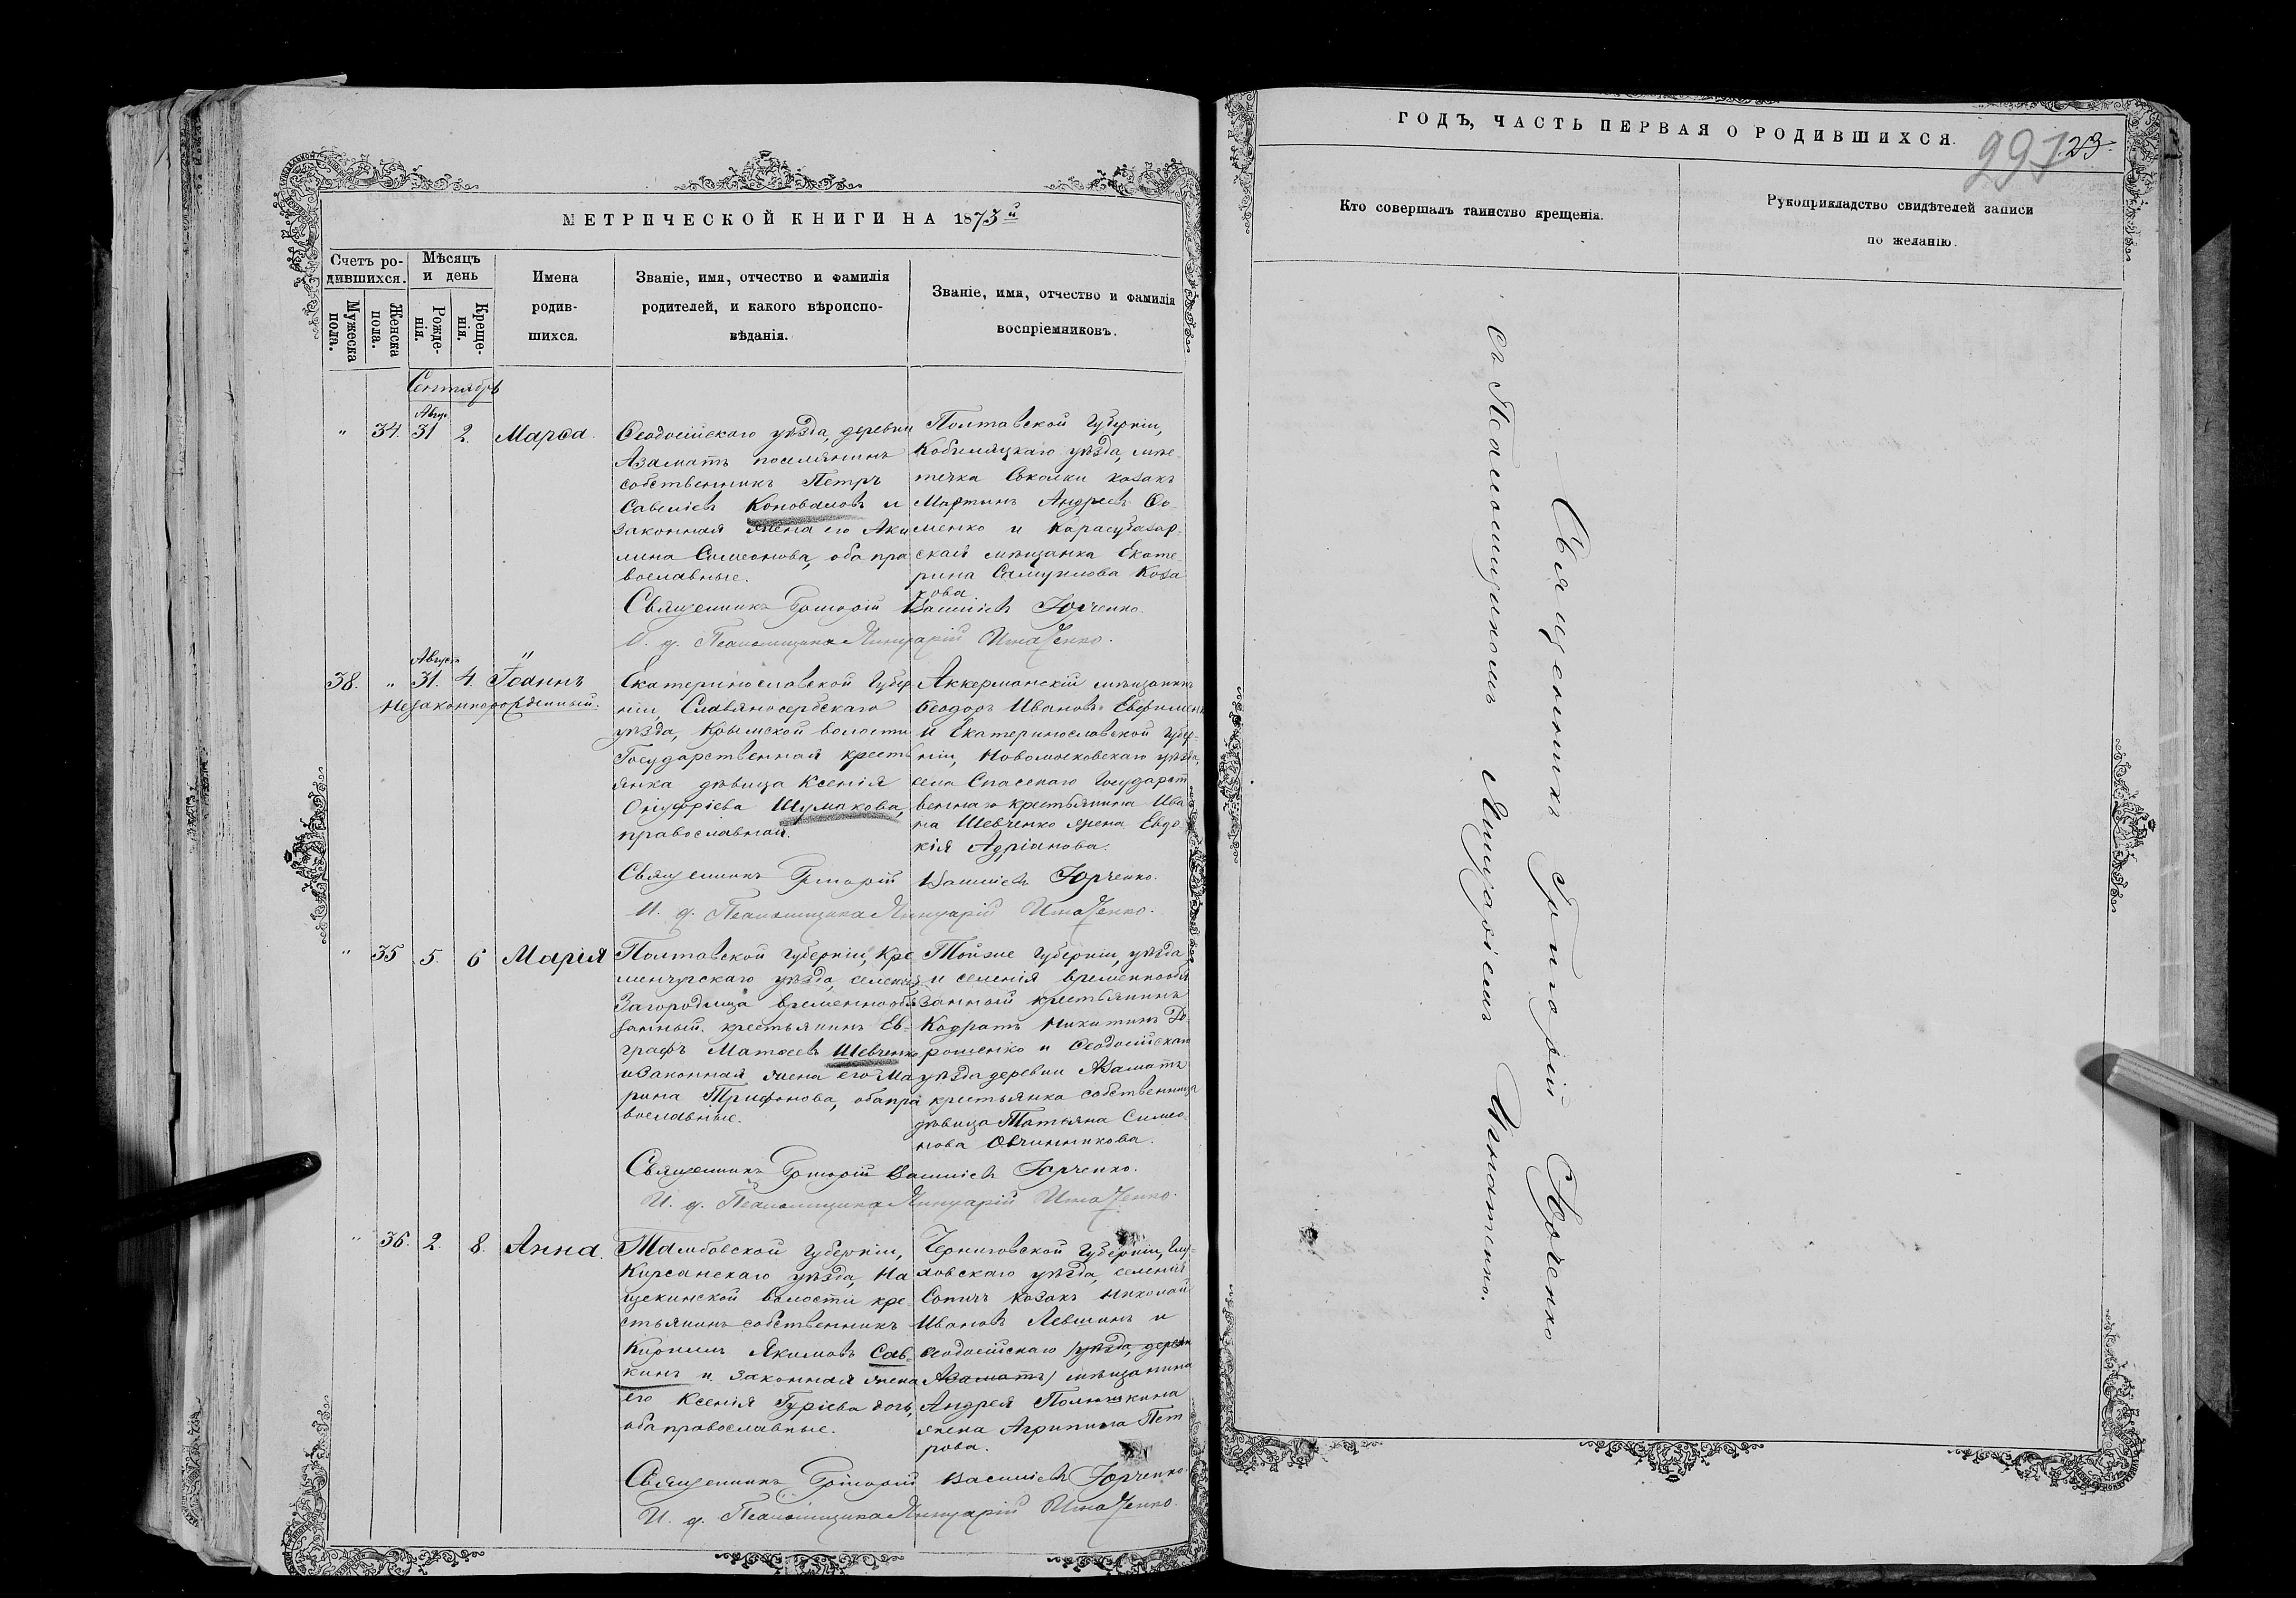 МЕТРИЧЕСКОЙ КНИГИ НА 1873й
Счетъ ро-
дившихся.
Мѣсяцъ
и день
Мужеска
пола.
Женска
пола.
Рожде-
нія.
Креще-
нія.
Имена
родив-
шихся.
Званіе, имя, отчество и фамилія
родителей, и какого вѣроиспо-
вѣданія.
Званіе, имя, отчество и фамилія
воспріемниковъ.
Сентябрь
Авгус.
" 34. 31 2. Марѳа.
Ѳеодосійскаго уѣзда, деревни
Азаматъ поселянинъ
собственникъ Петръ
Савеліевъ Коноваловъ и
законная жена его Аки
лина Симеонова, оба пра
вославные.
Полтавской Губерніи,
Кобыляцкаго уѣзда, мѣс-
течка Соколки козакъ
Мартинъ Андреевъ Ѳо-
менко и Карасубазар-
ская мѣщанка Екате
рина Самуилова Коза
кова
Священникъ Григорій Васильевъ Юрченко.
И. д. Псаломщика Януарій Игнатенко.
Августъ
38. " 31. 4. Іоаннъ
Незаконнорожденный.
Екатеринославской Губер
ніи, Славяносербскаго
уѣзда, Крымской волости
Государственная кресть
янка дѣвица Ксенія
Онуфріева Шумакова,
православная.
Аккерманскій мѣщанинъ
Ѳеодоръ Ивановъ Евфимен
и Екатеринославской Губер-
ніи, Новомосковскаго уѣзда,
села Спасскаго Государст
веннаго крестьянина Ива
на Шевченко жена Евдо
кія Адріанова.
Священникъ Григорій Васильевъ Юрченко.
И. д. Псаломщика Януарій Игнатенко.
" 35 5. 6 Марія
Полтавской Губерніи, Кре
менчугскаго уѣзда, селенія
Загородища временнообя
занный крестьянинъ Ев-
графъ Матѳеевъ Шевченко
и законная жена его Ма
рина Трифонова, оба пра
вославные.
Тойже Губерніи, уѣзда
и селенія временнообя
занный крестьянинъ
Кодратъ Никитинъ До-
рошенко и Ѳеодосійскаго
уѣзда деревни Азаматъ
крестьянка собственница
дѣвица Татьяна Симео
нова Овчинникова.
Священникъ Григорій Васильевъ Юрченко.
И. д. Псаломщика Януарій Игнатенко.
" 36. 2. 8. Анна.
Тамбовской Губерніи,
Кирсанскаго уѣзда, На
щекинской волости кре
стьянинъ собственникъ
Кирилъ Якимовъ Сав-
кинъ и законная жена
его Ксенія Гуріева дочь,
оба православные.
Черниговской Губерніи, Глу-
ховскаго уѣзда, селенія
Сопичъ козакъ Николай
Ивановъ Левшинъ и
Ѳеодосійскаго (уѣзда, деревни
Азаматъ) мѣщанина
Андрея Полюшкина
жена Агрипина Пет
рова.
Священникъ Григорій Васильевъ Юрченко.
И. д. Псаломщика Януарій Игнатенко.
ГОДЪ, ЧАСТЬ ПЕРВАЯ О РОДИВШИХСЯ.
23.
Кто совершалъ таинство крещенія.
Рукоприкладство свидѣтелей записи
по желанію.
Священникъ Григорій Юрченко
съ Псаломщикомъ Януаріемъ Игнатенко.